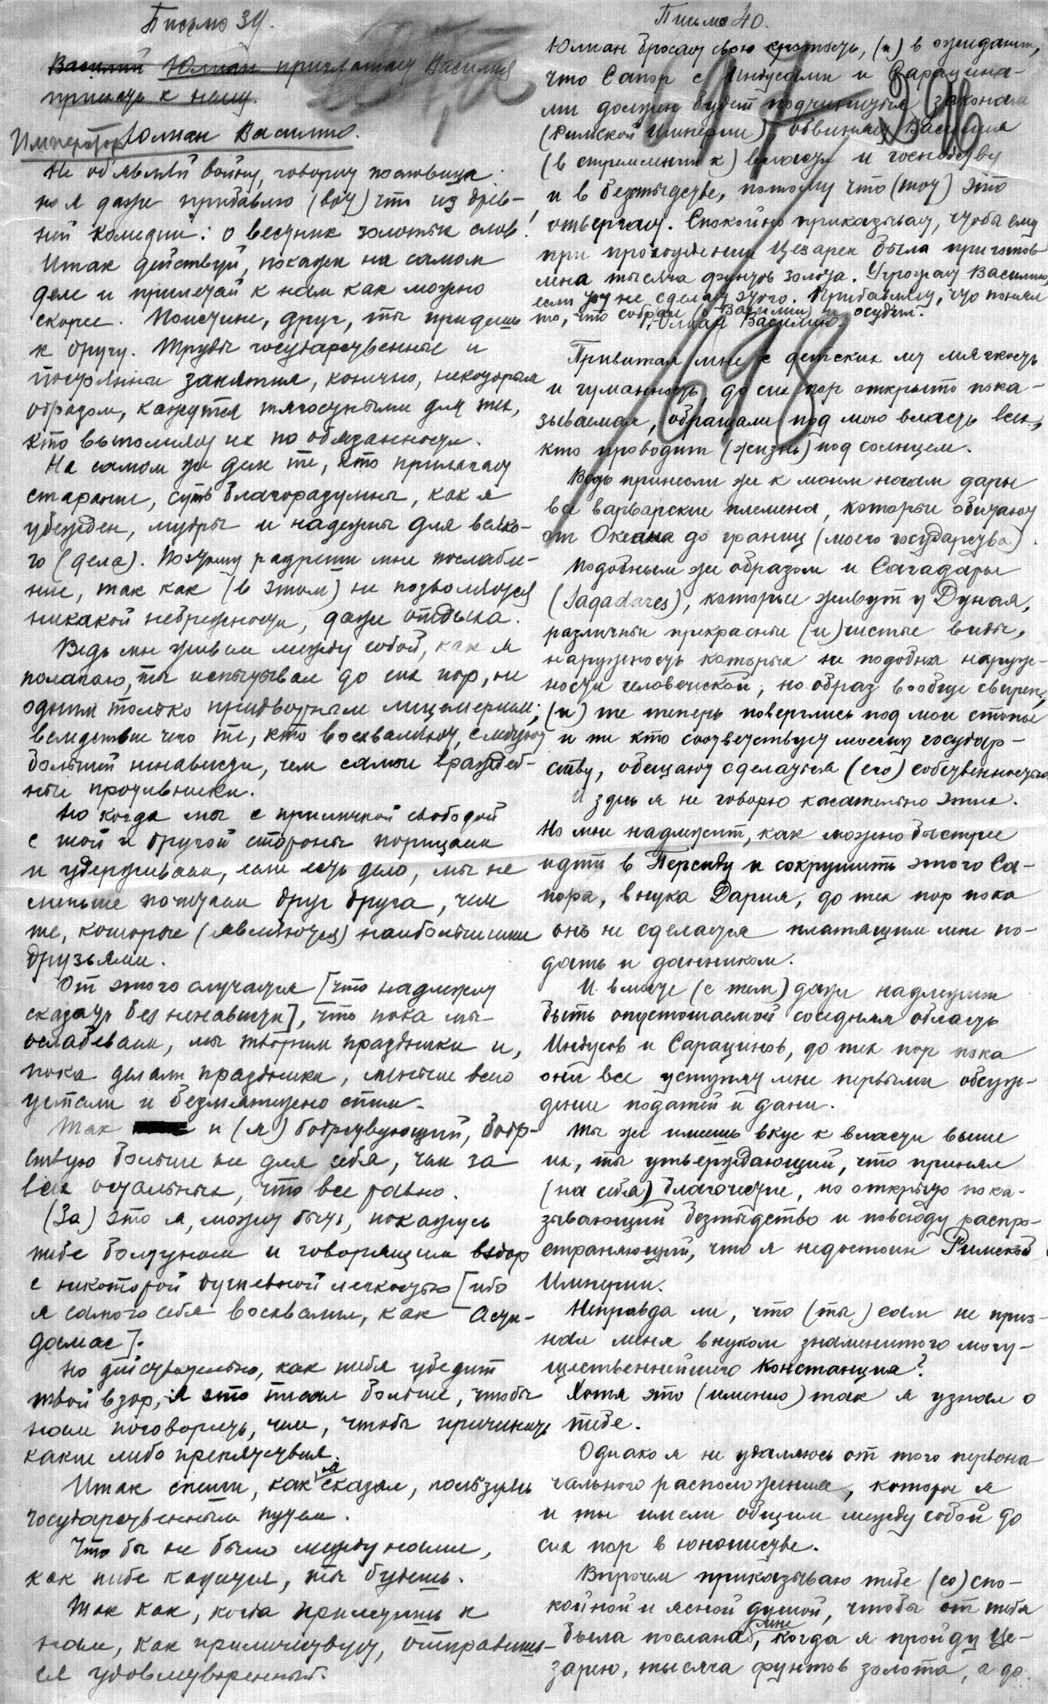 Письмо 39.
Василий Юлиан приглашает Василия
приехать к нему.
Император Юлиан Василию.
Не об'являй войну, говорит пословица
но я даже прибавлю (вот) что из древ-
ней комедии: о вестник золотых слов!
Итак действуй, покажи на самом
деле и прилетай к нам как можно
скорее. Поистине, друг, ты придешь
к другу. Труды государственные и
постоянные занятия, конечно, некоторым
образом, кажутся тягостными для тех,
кто выполняет их по обязанности.
На самом же деле те, кто прилагает
старание, суть благоразумны, как я
убежден, мудры и надежны для всяко-
го (дела). Поэтому разреши мне послабле-
ние, так как (в этом) не позволяется
никакой небрежности, даже отдыха.
Ведь мы живем между собой, как я
полагаю, ты испытывал до сих пор, не
одним только придворным лицемерием;
вследствие чего те, кто восхваляют, следуют
большей ненависти, чем самые враждеб-
ные противники.
Но когда мы с приличной свободой
с той и другой стороны порицаем
и удерживаем, если есть дело, мы не
меньше почитаем друг друга, чем
те, которые (являются) наибольшими
друзьями.
От этого случается [что надлежит
сказать без ненависти], что пока мы
ослабеваем, мы творим праздники и,
пока делаем праздники, меньше всего
устали и безмятежно спим.
Так и (я) бодрствующий, бодр-
ствую больше не для себя, чем за
всех остальных, что все равно.
(За) это я, может быть, покажусь
тебе болтуном и говорящим вздор
с некоторой душевной легкостью [ибо
я самого себя восхвалил, как Асти-
дамас].
Но действительно, как тебя убедит
твой взор, я это писал больше, чтобы
нам поговорить, чем, чтобы причинить
какие либо препятствия.
Итак спеши, как я сказал, пользуясь
государственным путем.
Что бы не было между нами,
как тебе кажется, ты будешь.
Так как, когда прилетишь к
нам, как приличествует, отправишь-
ся удовлетворенный.
Письмо 40.
Юлиан бросает свою кротость, (и) в ожидании,
что Сапор с Индусами и Сарацина-
ми должен будет подчиниться законам
(Римской империи), обвиняет Василия
(в стремлении к) власти и господству
и в бесстыдстве, потому что (тот) это
отвергает. Спокойно приказывает, чтобы ему
при прохождении Цезареи была приготов-
лена тысяча фунтов золота. Угрожает Василию,
если тот не сделает этого. Прибавляет, что понял
то, что собрал (о Василии) и осудил.
Юлиан Василию.
Привитая мне с детских лет мягкость
и гуманность, до сих пор открыто пока-
зываемая, обращали под мою власть всех,
кто проводит (жизнь) под солнцем.
Ведь принесли же к моим ногам дары
все варварские племена, которые обитают
от Океана до границ (моего государства).
Подобным же образом и Сагадары
(Sagadares), которые живут у Дуная,
различные прекрасные (и) чистые виды,
наружность которых не подобна наруж-
ности человеческой, но образ вообще свирепый,
(и) те теперь поверглись под мои стопы
и те кто соответствует моему государ-
ству, обещают сделаться (его) собственностью.
И здесь я не говорю касательно этих.
Но мне надлежит, как можно быстрее
идти в Персиду и сокрушить этого Са-
пора, внука Дария, до тех пор пока
онъ не сделается платящим мне по-
дать и данником.
И вместе (с тем) даже надлежит
быть опустошаемой соседняя область
Индусов и Сарацинов, до тех пор пока
они все уступят мне первыми обсуж-
дение податей и дани.
Ты же имеешь вкус к власти выше
их, ты утверждающий, что принял
(на себя) благочестие, но открыто пока-
зывающий безстыдство и повсюду распро-
страняющий, что я недостоин Римской
Империи.
Неправда ли, что (ты) сам не приз-
нал меня внуком знаменитого могу-
щественнейшего Констанция?
Хотя это (именно) так я узнал о
тебе.
Однако я не удаляюсь от того первона-
чального расположения, которое я
и ты имели общим между собой до
сих пор в юношестве.
Впрочем приказываю тебе (со) спо-
койной и ясной душой, чтобы от тебя
была послана мне, когда я пройду Це-
зарею, тысяча фунтов золота, а до
197
296
198